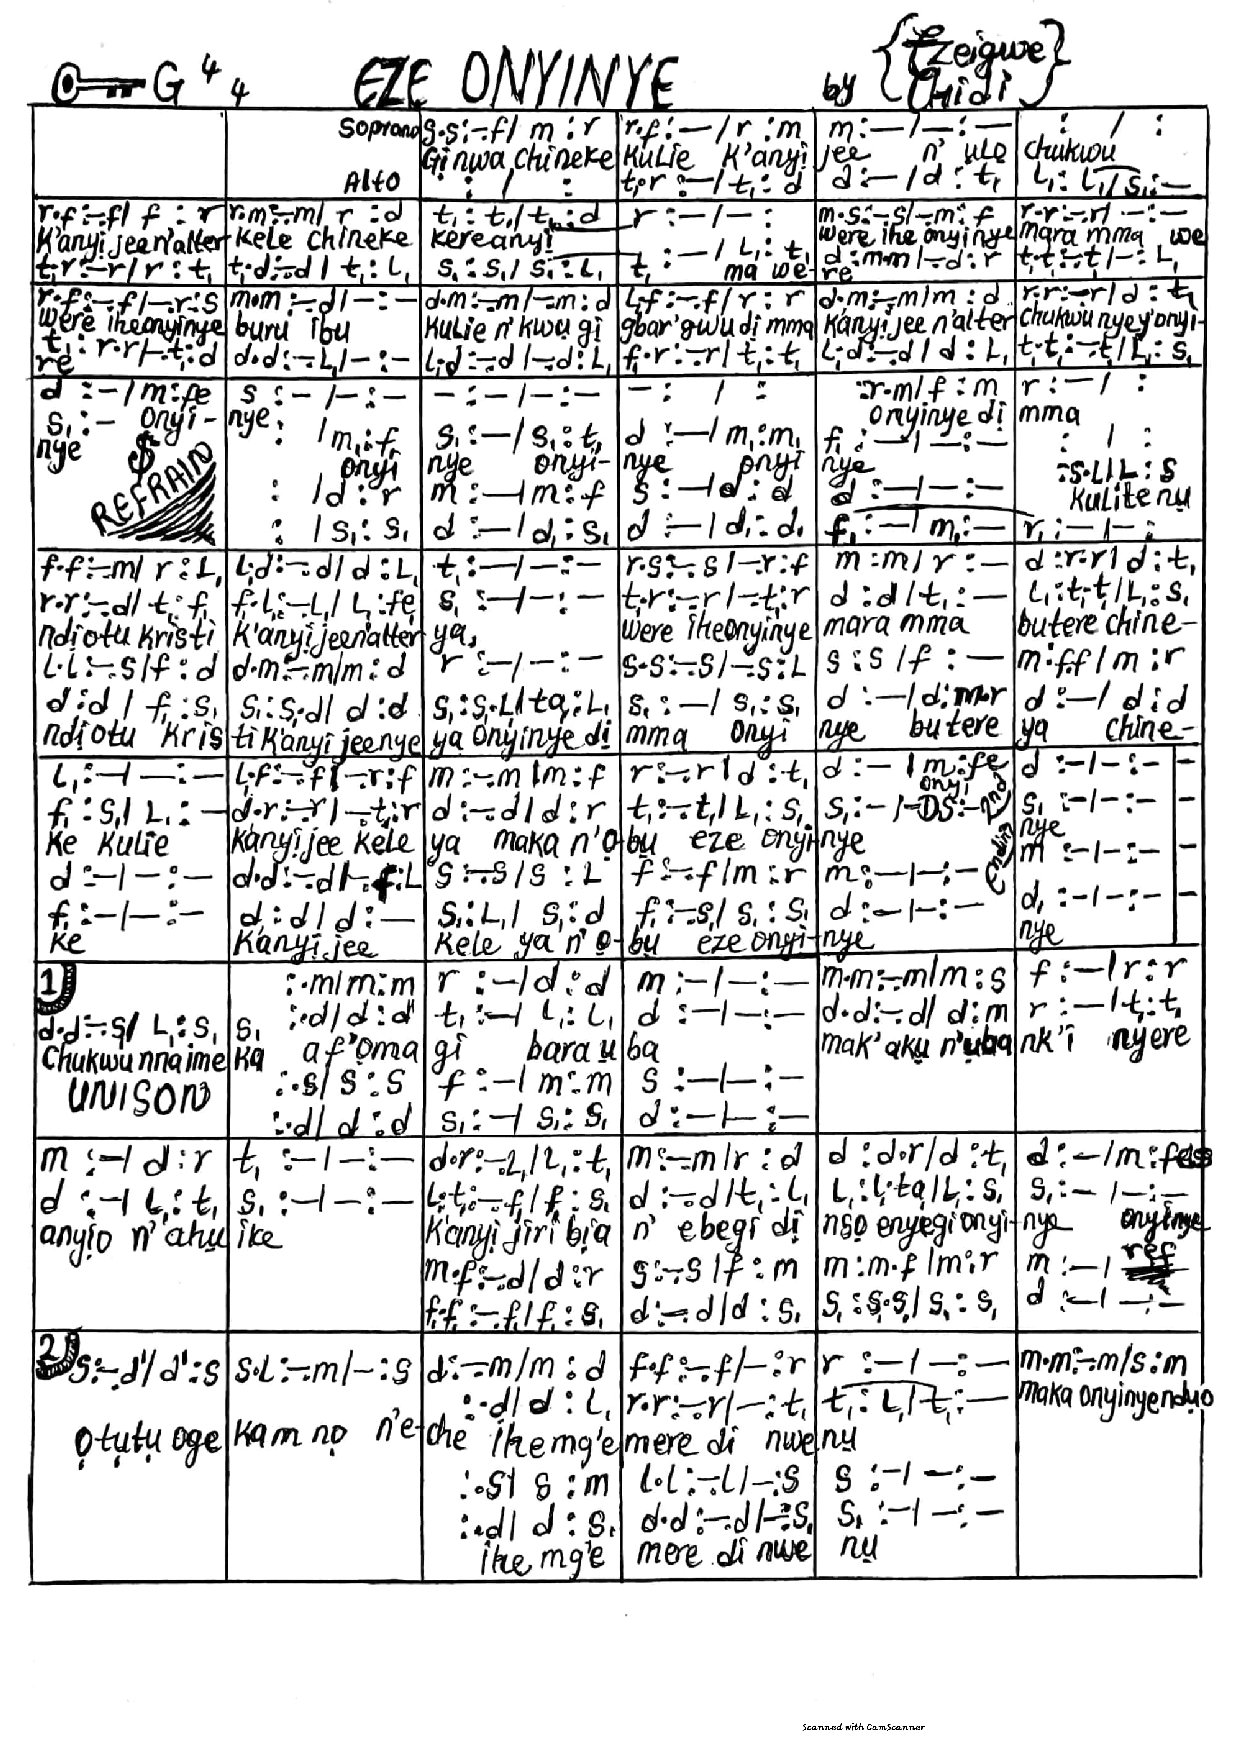 G 4 4 EZE ONYINYE by { Ezeigwe Chidi }
Soprano s.s:-.f/ m : r r.f : — / r : m m : — / — : — : / :
Gi nwa chineke Kulie K'anyi jee n' ulo chukwu
Alto : / : t,.r : — / t, : d d : — / d : t, L, : L, / s, : —
r.f :-.f/ f : r r.m :-.m/ r : d t, : t, / t, : d r : — / — : m.s :-.s/ -.m : f r.r :-.r/ — : —
K'anyi jee n'alter kele chineke kereanyi were ihe onyinye mara mma we
t,.r :-.r/ r : t, t,.d :-.d/ t, : L, s, : s, / s, : L, t, : — / L, : t, d.m.m/ -.d : r t,.t, :-.t,/ — : L,
ma we- re
r.f :-.f/ -.r : s m.m :-.d/ — : — d.m :-.m/ -.m : d L,.f :-.f/ r : r d.m :-.m/m : d r.r :-.r/ d : t,
were iheonyinye buru ibu Kulie n'kwu gi gbar'gwu di mma K'anyi jee n'alter chukwu nyey'onyi-
t, : r.r/ -.t, : d d.d :-.L,/ — : — L,.d :-.d/ -.d : L, f.r :-.r/ t, : t, L,.d :-.d/ d : L, t,.t, :-.t,/ L, : s,
re
d : — / m : fe s : — / — : — — : — / — : — — : / : :r.m/ f : m r : — / :
s, : — onyi- nye, onyinye di mma
nye $ : / m, : f, s, : — / s, : t, d : — / m, : m, f, : — / — : — : / :
REFRAIN onyi nye onyi- nye onyi nye
: / d : r m : — / m : f s : — / d : d d : — / — : — :s.L/ L : s
Kulitenu
: / s, : s, d : — / d, : s, d : — / d, : d, f, : — / m, : — r, : — / — :
f.f :-.m/ r : L, L,.d :-.d/ d : L, t, : — / — : — r.s :-.s/ -.r : f m : m/ r : — d : r.r/ d : t,
r.r :-.d/ t, : f, f,.L, :-.L,/ L, : fe s, : — / — : — t,.r :-.r/ -.t, : r d : d / t, : — L, : t,.t,/ L, : s,
ndiotu Kristi K'anyi jeen'alter ya, were iheonyinye mara mma butere chine-
L.L :-.s/ f : d d.m :-.m/m : d r : — / — : — s.s :-.s/ -.s : L s : s / f : — m : f.f / m : r
d : d / f, : s, s, : s,.d/ d : d s, : s,.L,/ ta, : L, s, : — / s, : s, d : — / d : m.r d : — / d : d
ndiotu Kris ti K'anyi jeenye ya onyinye di mma onyi nye butere ya chine-
L, : — / — : — L,.f :-.f/ -.r : f m :-.m / m : f r :-.r / d : t, d : — / m : fe d : — / — : — -
onyi
f, : s, / L, : — d.r :-.r/ -.t, : r d :-.d / d : r t, :-.t, / L, : s, s, : — / - DS : — 2nd ending s, : — / — : — -
Ke Kulie K'anyi jee Kele ya maka n'o- bu eze onyi- nye nye
d : — / — : — d.d :-.d/ -.f : L s :-.s / s : L f :-.f / m : r m : — / — : — m : — / — : — -
f, : — / — : — d : d / d : — s, : L, / s, : d f, :-.s, / s, : s, d : — / — : — d, : — / — : — -
Ke K'anyi jee Kele ya n'o- bu eze onyi- nye nye
1) :.m/ m : m r : — / d : d m : — / — : — m.m :-.m/ m : s f : — / r : r
d.d :-.s/ L, : s, s, :.d/ d : d t, : — / L, : L, d : — / — : — d.d :-.d/ d : m r : — / t, : t,
Chukwu nna ime ka af'oma gi bara u ba mak' aku n'uba nk'i nyere
UNISON :.s/ s : s f : — / m : m s : — / — : —
:.d/ d : d s, : — / s, : s, d : — / — : —
m : — / d : r t, : — / — : — d.r :-.L,/ L, : t, m :-.m / r : d d : d.r / d : t, d : — / m : fe s
d : — / L, : t, s, : — / — : — L,.t, :-.f,/ f, : s, d :-.d / t, : L, L, : L,.ta / L, : s, s, : — / — : —
anyio n'ahu ike K'anyi jiri bia n' ebegi di nso enyegi onyi- nye onyinye
m.f :-.d/ d : r s :-.s / f : m m : m.f / m : r m : — / ref
f,.f, :-.f,/ f, : s, d :-.d / d : s, s, : s,.s, / s, : s, d : — / — : —
2) s :-.d'/ d' : s s.L :-.m/ — : s d :-.m / m : d f.f :-.f/ — : r r : — / — : — m.m :-.m/ s : m
:.d/ d : L, r.r :-.r/ — : t, t, : L, / t, : — maka onyinyenduo
ọtụtụ oge kam nọ n'e- che ihe mg'e mere di nwe nụ
:.s/ s : m L.L :-.L/ — : s s : — / — : —
:.d/ d : s, d.d :-.d/ — : s, s, : — / — : —
ihe mg'e mere di nwe nụ
Scanned with CamScanner